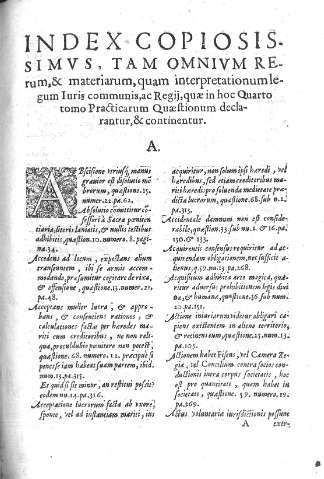 INDEX COPIOSIS-
SIMVS, TAM OMNIVM RE-
rum, & materiarum, quam interpretationum le-
gum Iuris communis, ac Regij, quæ in hoc Quarto
tomo Practicarum Quæstionum decla-
rantur, & continentur.
A.
ABscisione verius, manus
grauior est dissolutio mẽ
brorum, quæstione.15.
numer.22.pa.62.
Absolutio committitur con-
fessori à Sacra pœniten
tiaria, literis laniatis, & nullis testibus
adhibitis, quæstion.10. numero.8. pagi-
na.34.
Accedens ad locum, expectans alium
transeuntem, ibi se armis accom-
modando, præsumitur cogitare de vita,
& offensione, quæstion.13.numer.21,
pa.48.
Acceptans mulier lucra, & appro-
bans, & consentiens rationes, &
calculationes factas per heredes ma-
riti cum creditoribus, ne non reli-
qua, procul dubio pœnitere non poterit,
quæstione.68. numero.12. præcipuè si
penes etiam habeat suam partem, ibid.
num.13.pa.315.
Et quid si sit minor, an restitui possit?
eodem nu.14.pa.316.
Acceptatione lucrorum facta ab vxore,
sponte, vel ad instantiam mariti, ius
acquiritur, non solum ipsi haredi, vel
haredibus, sed etiam creditoribus ma-
riti haredi: pro soluenda medietate præ-
dicta lucrorum, quæstione.68.sub nu.
pa.315.
Accidentale damnum non est conside-
rabile, quæstion.33.sub nu.2. & 16.pa.
130.& 133.
Acquirentis consensus requiritur ad ac-
quirendam obligationem, nec sufficit a-
lienus, q.59.nu.13.pa.268.
Acquisitum adhibita arte magica, quæ-
ritur aduersus prohibitionem legis diui
næ, & humanæ, quæstione.36.sub num.
22.pa.
Actione iniuriarum videtur obligari ca-
piens existentem in alieno territorio,
& retinens eum, quæstione.25.num.13.
pa.105.
Actionem habet Fiscus, vel Camera Re-
gia, vel Concilium contra socios con-
ducentis intra corpus societatis, hoc
est pro quantitate, quem habet in
societate, quæstione.59. numero.19.
pa.269.
Actus voluntaria iurisdictionis possunt
A extr-